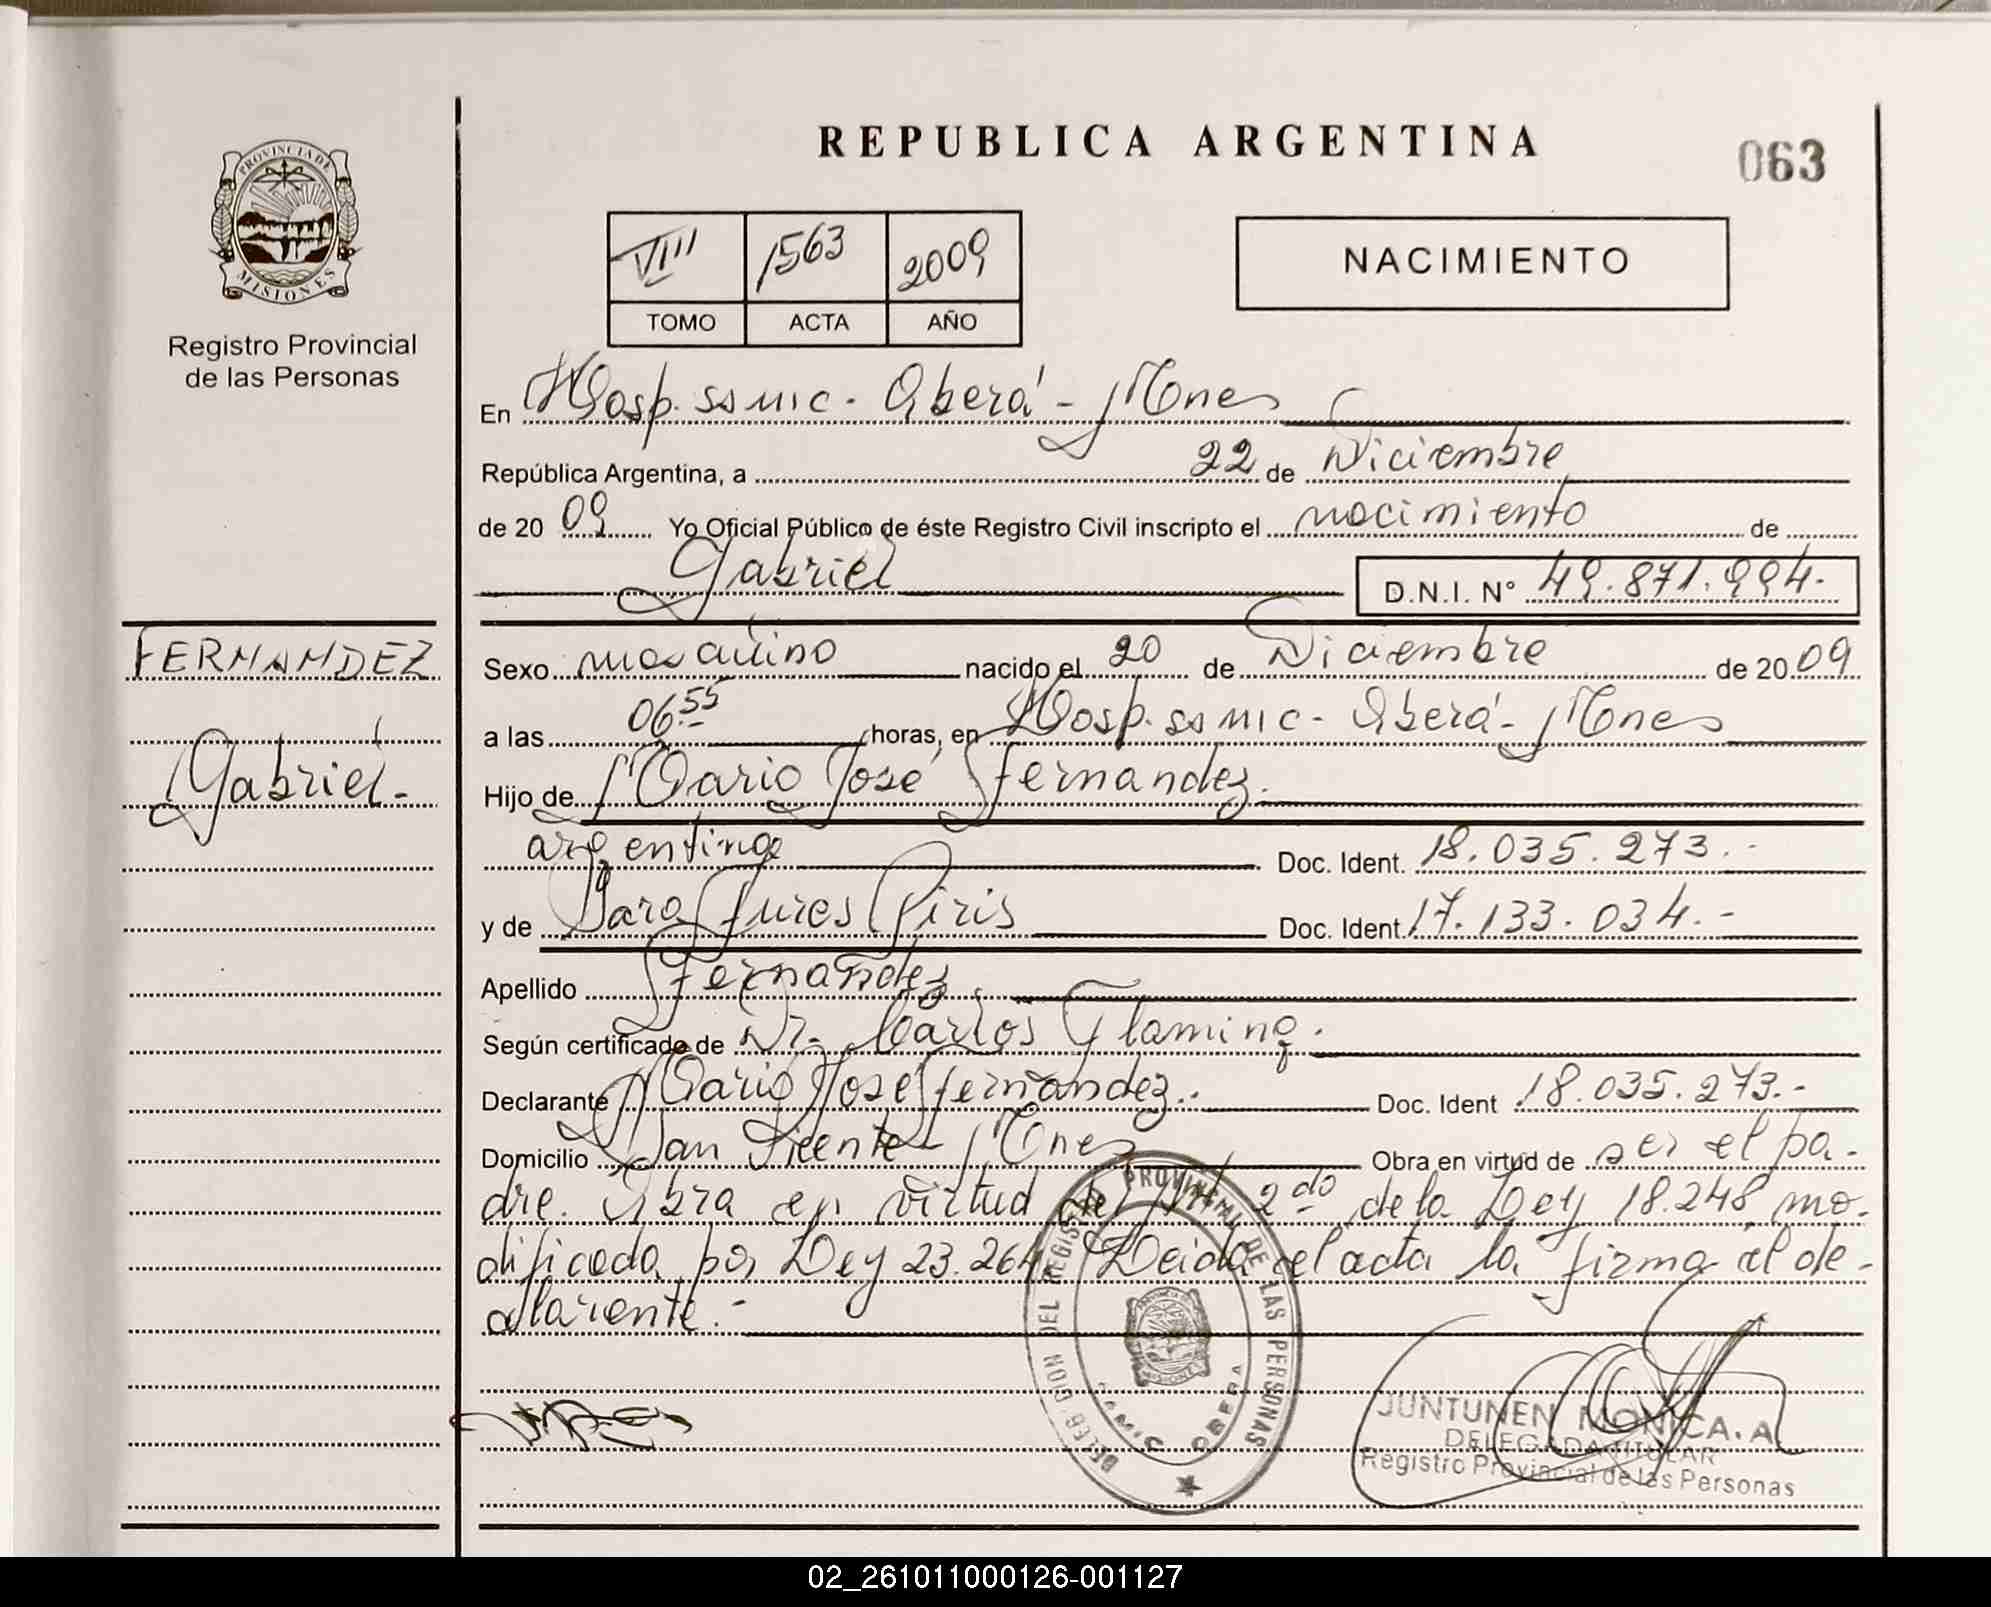 REPUBLICA ARGENTINA
063
PROVINCIA DE
MISIONES
Registro Provincial
de las Personas
VIII 1563 2009
TOMO ACTA AÑO
NACIMIENTO
En Hosp. ssmic. Oberá - Mnes
República Argentina, a 22 de Diciembre
de 20 09 Yo Oficial Público de éste Registro Civil inscripto el nacimiento de
Gabriel D.N.I. N° 49.871.994.-
FERNANDEZ
Gabriel.-
Sexo masculino nacido el 20 de Diciembre de 20 09
a las 06.55 horas, en Hosp. ssmic - Oberá - Mnes
Hijo de Mario José Fernandez.
argentino Doc. Ident. 18.035.273.-
y de Piris Doc. Ident. 17.133.034.-
Apellido Fernandez
Según certificado de Dr. Carlos
Declarante Mario José Fernandez.. Doc. Ident 18.035.273.-
Domicilio San Vicente - Mnes Obra en virtud de ser el pa-
dre. Obra en virtud del Art 2do de la Ley 18.248, mo-
dificada por Ley 23.264. Leida el acta la firma el de-
clarante.-
DELEGACION DEL REGISTRO PROVINCIAL DE LAS PERSONAS
OBERA
JUNTUNEN MONICA. A
DELEGADA TITULAR
Registro Provincial de las Personas
02_261011000126-001127